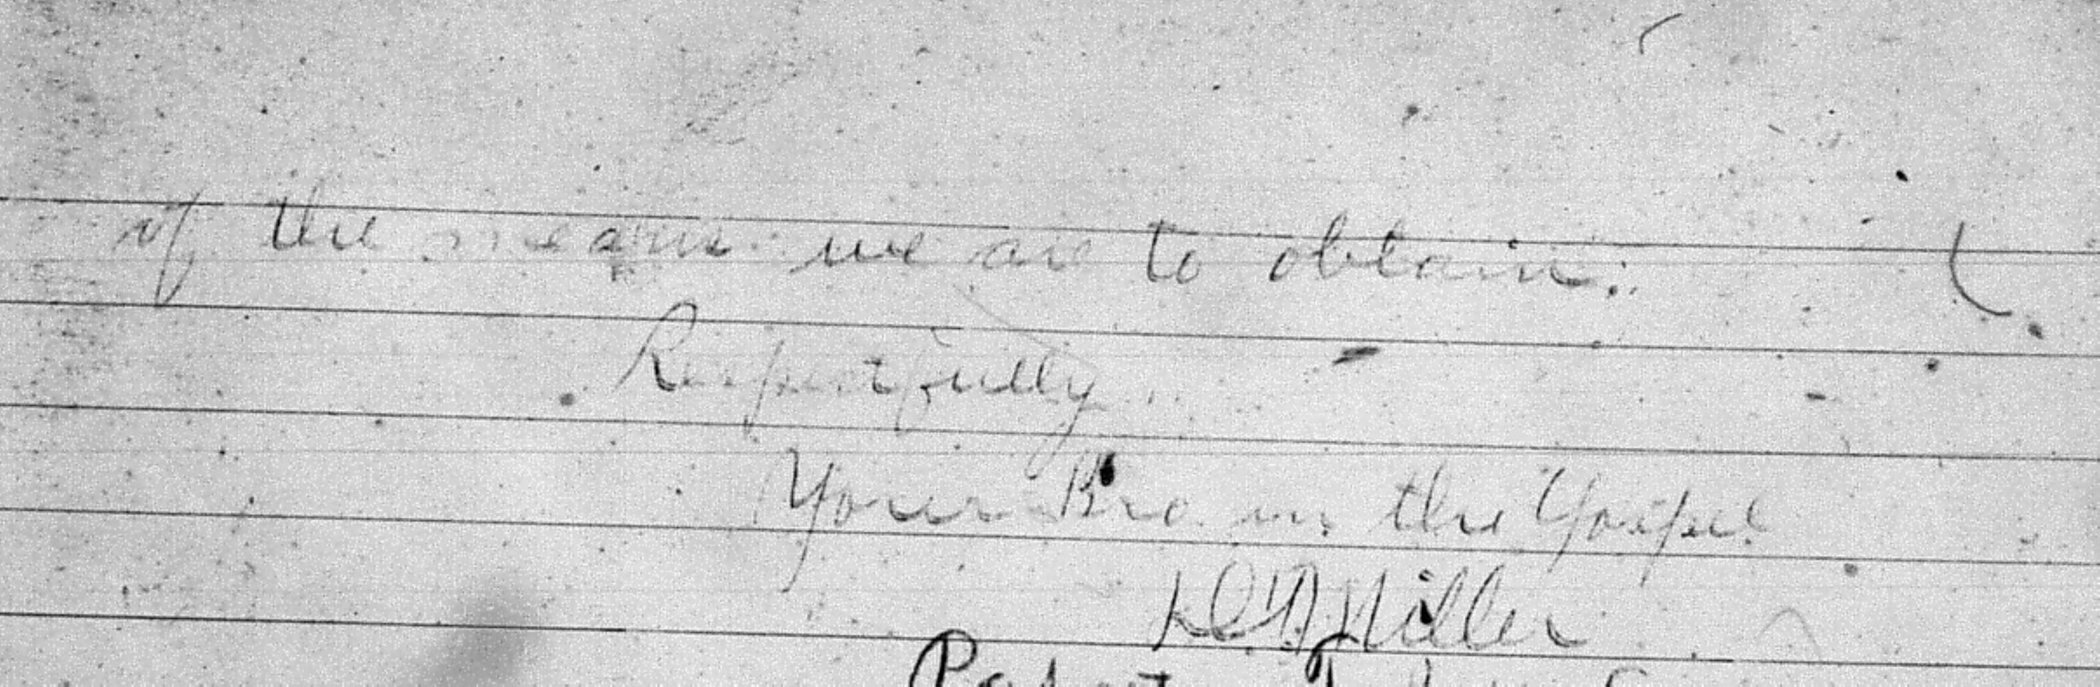 of the means we are to obtain.
Respectfully
Your Bro in the Gospel
Miller